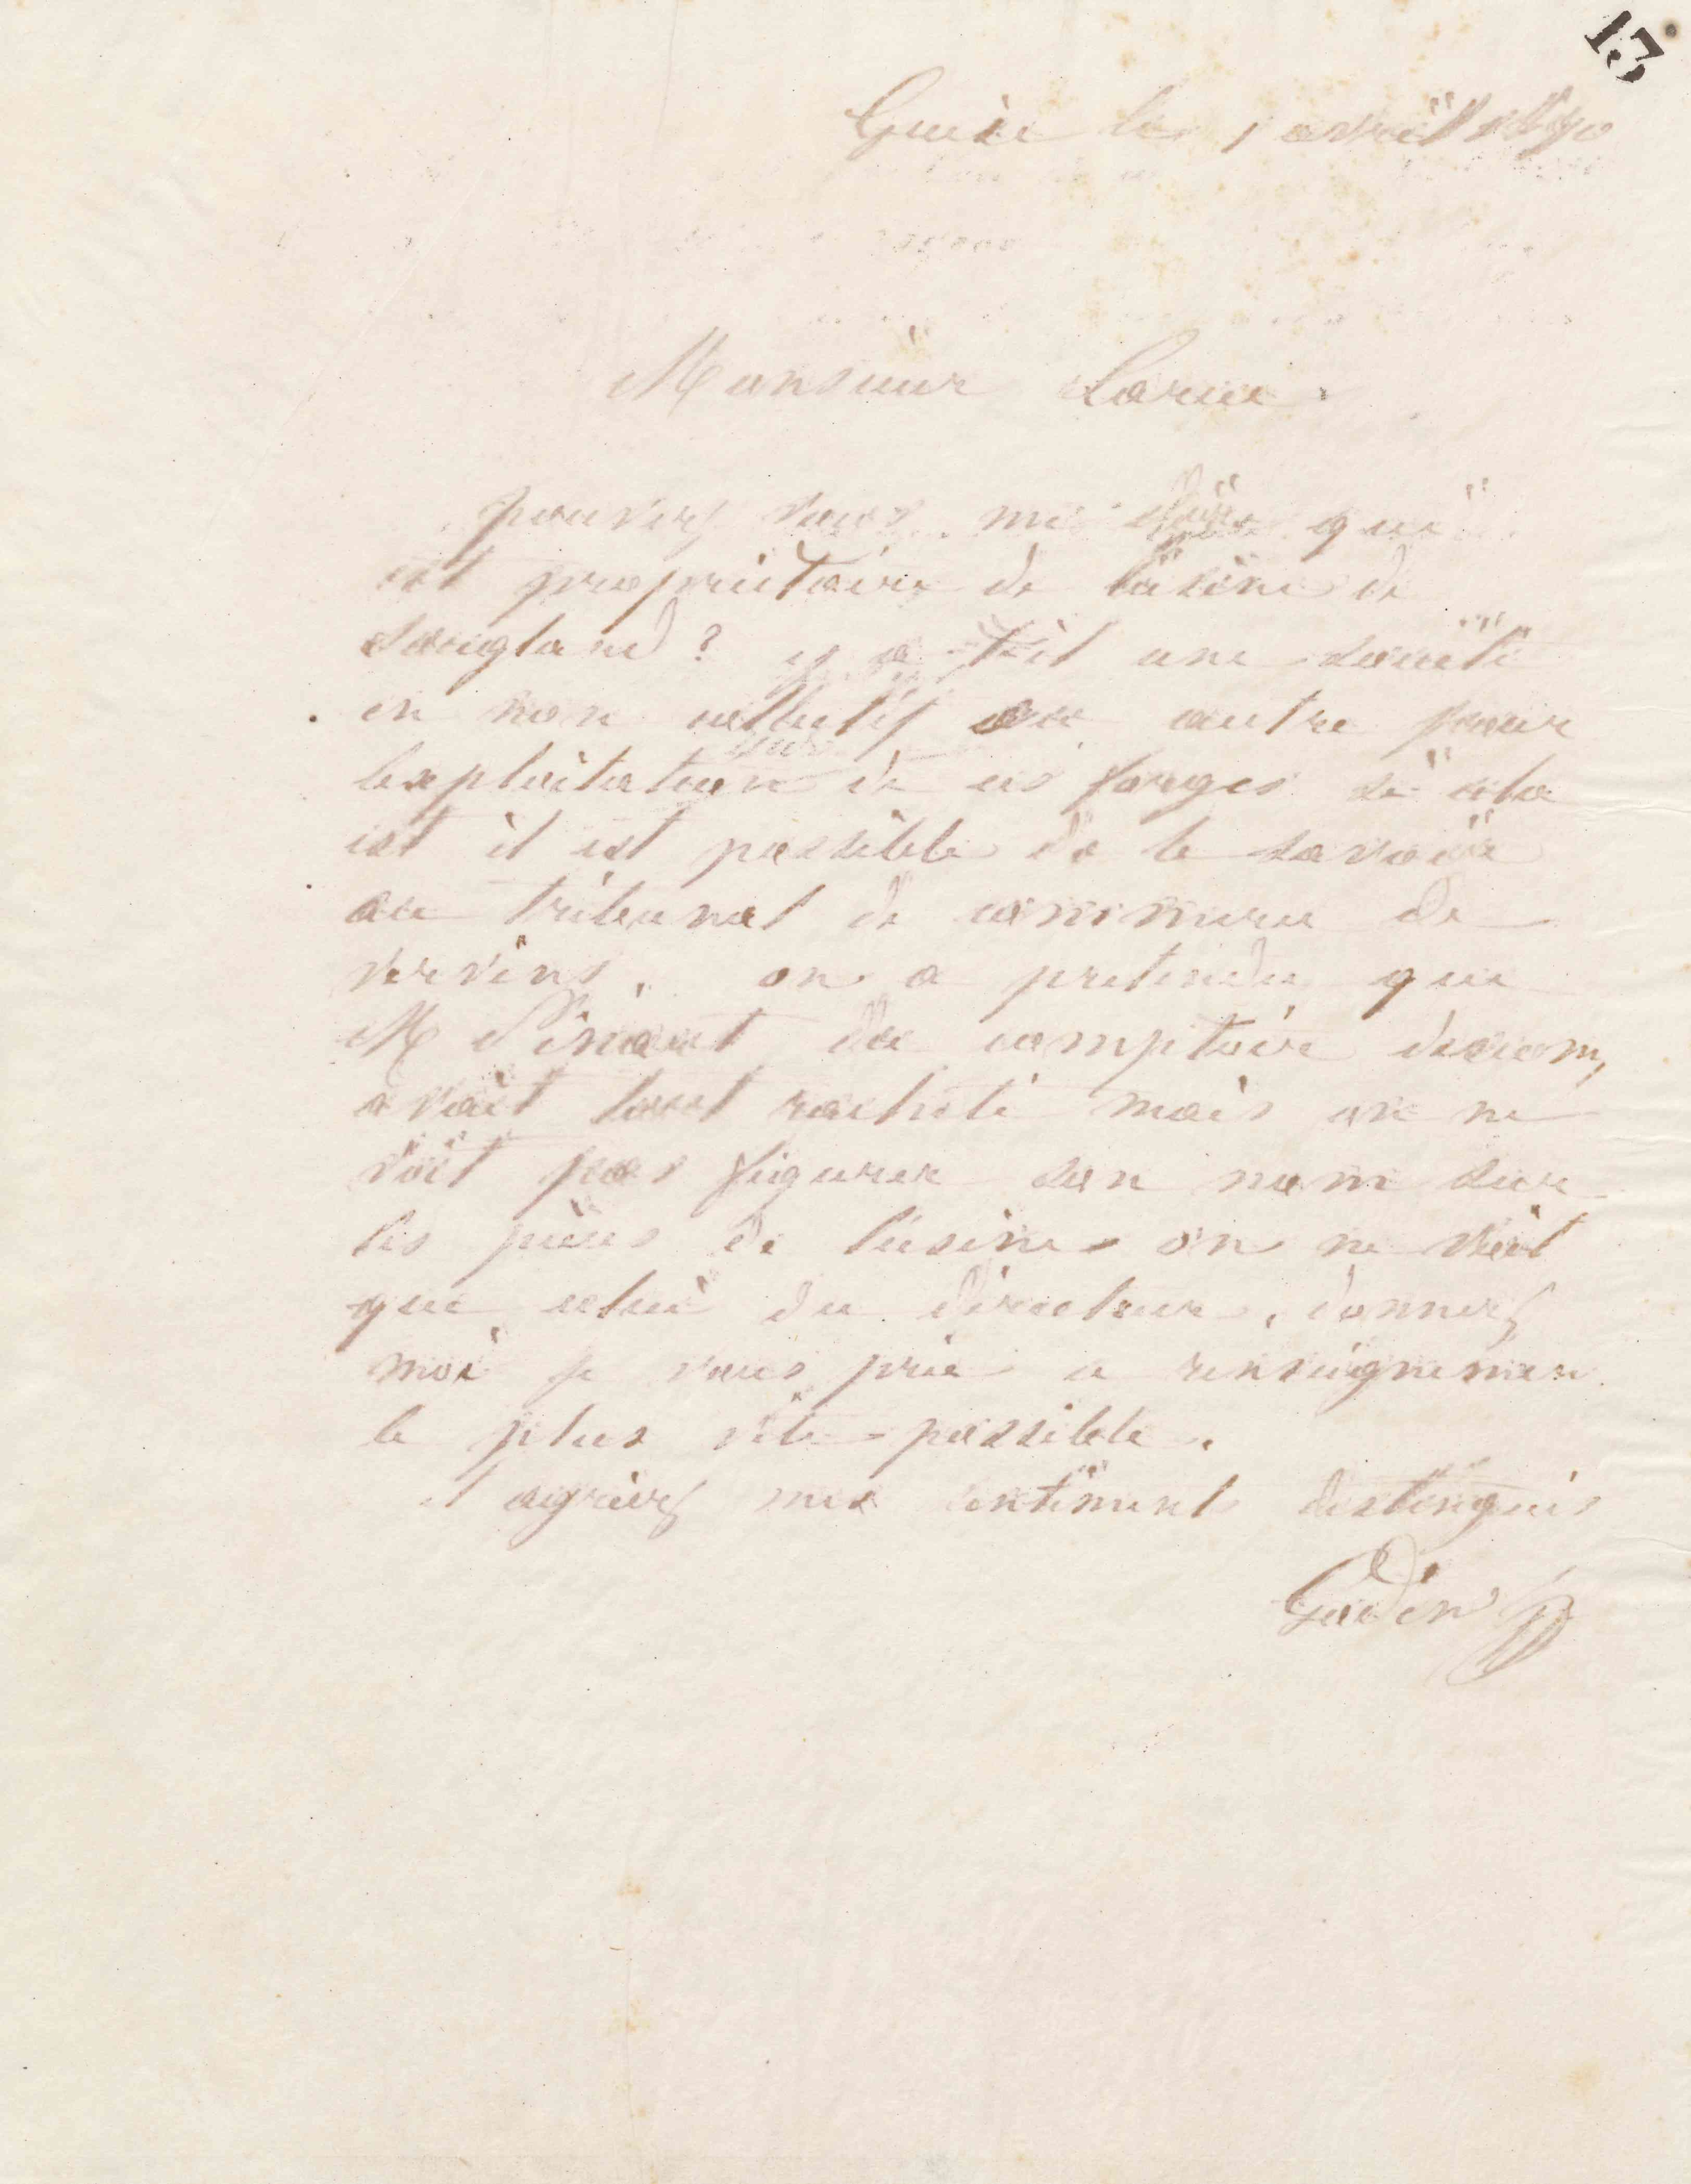 13
Guise le 1 avril
Monsieur Larue
pouvez vous me dire qui
est propriétaire de l'usine de
Sougland ? y a-t-il une société
en nom collectif ou autre pour
l'exploitation de ces forges si cela
est il est possible de le savoir
au tribunal de commerce de
vervins. on a pretendu que
M Pinart du comptoir descom,
avait tout racheté mais on ne
voit pas figurer son nom sur
les pièces de l'usine on ne voit
que celui du directeur. donnez
moi je vous prie ce renseignemen
le plus vite possible.
et agréez mes sentiments distingués
Godin